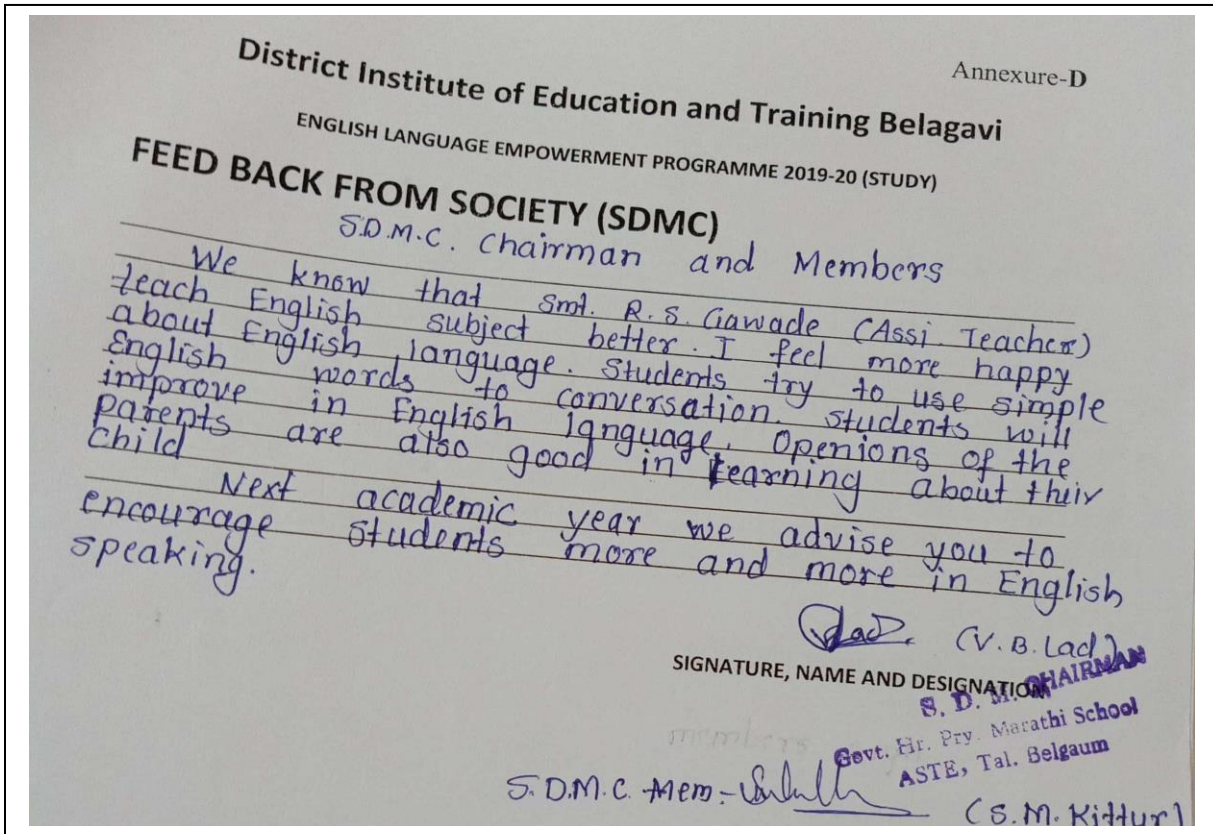 Annexure-D
District Institute of Education and Training Belagavi
ENGLISH LANGUAGE EMPOWERMENT PROGRAMME 2019-20 (STUDY)
FEED BACK FROM SOCIETY (SDMC)
S.D.M.C. Chairman and Members
We know that Smt. R.S. Gawade (Assi. Teacher)
teach English subject better. I feel more happy
about English language. Students try to use simple
English words to conversation. Students will
improve in English language. Openions of the
Parents are also good in Learning about their
child
Next academic year we advise you to
encourage students more and more in English
speaking.
(V.B. Lad)
SIGNATURE, NAME AND DESIGNATION
S. D. M. CHAIRMAN
Govt. Hr. Pry. Marathi School
ASTE, Tal. Belgaum
members
S.D.M.C. Mem-
(S.M. Kittur)